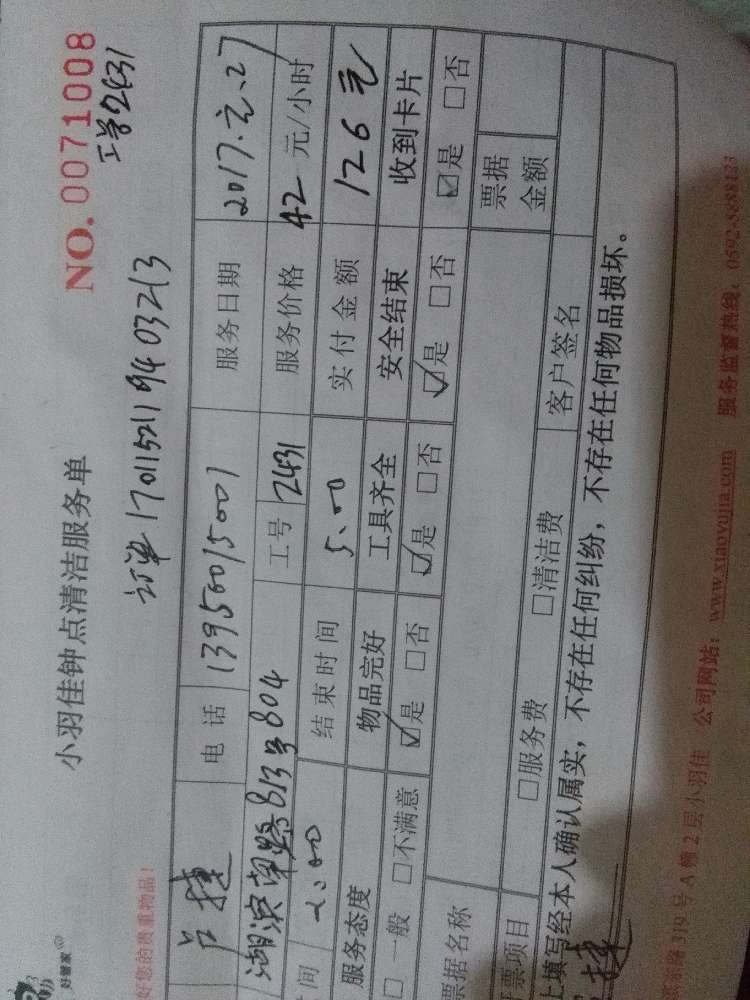 好管家
小羽佳钟点清洁服务单
NO. 0071008
工号2431
好您的贵重物品!
订单 1701152119403213
卢捷 电话 13956015001 服务日期 2017.元.27
湖滨南路813号804 工号 2431 服务价格 42 元/小时
间 2:00 结束时间 5:00 实付金额 126元
服务态度 物品完好 工具齐全 安全结束 收到卡片
□一般 □不满意 ☑是 □否 ☑是 □否 ☑是 □否 ☑是 □否
票据名称 票据金额
票项目 □服务费 □清洁费 客户签名
上填写经本人确认属实,不存在任何纠纷,不存在任何物品损坏。
捷
路319号A幢2层小羽佳 公司网站:www.xiaoyujia.com 服务监督热线:0592-5688123